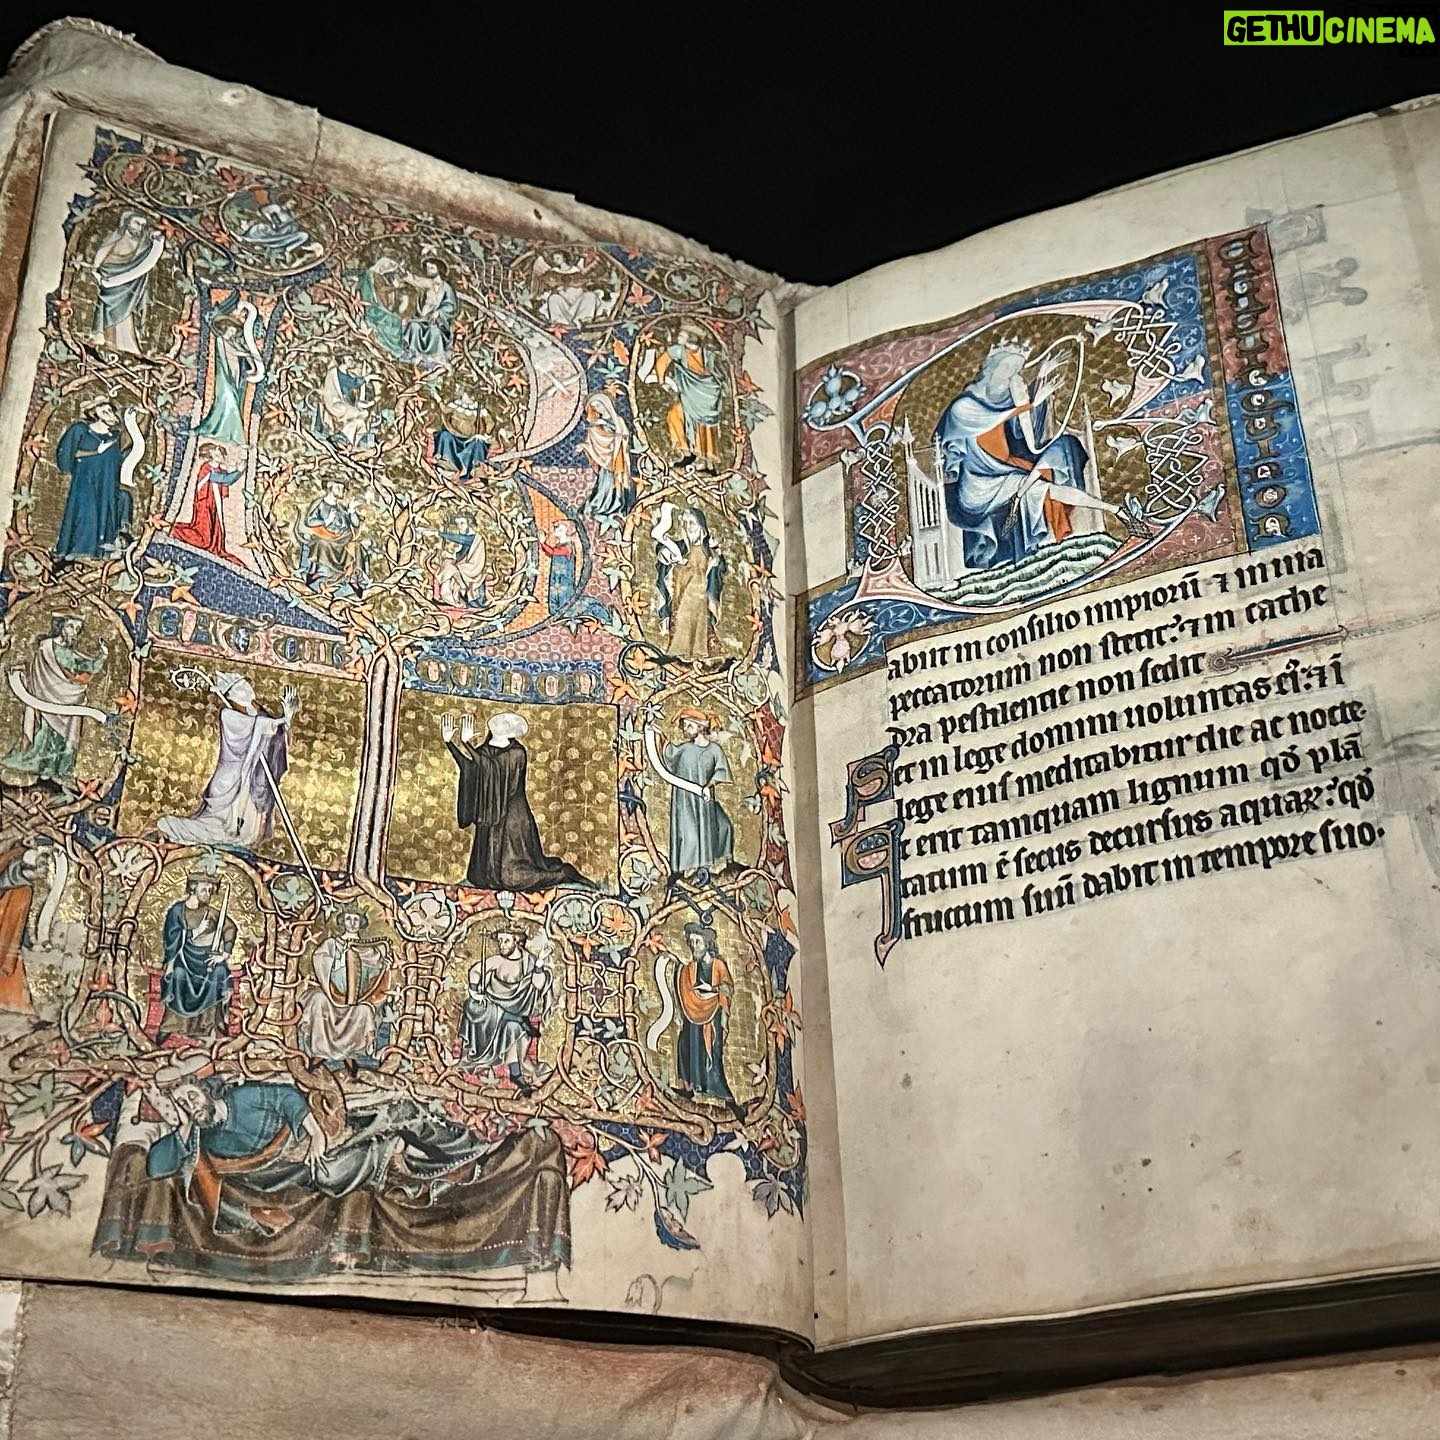 GETHUCINEMA
abiit in consilio impiorū ⁊ in uia
peccatorum non stetit: ⁊ in cathe
dra pestilentie non sedit
Set in lege domini uoluntas eiꝰ: ⁊ ī
lege eius meditabitur die ac nocte.
Et erit tamquam lignum qd̄ plā
tatum ē secus decursus aquaꝝ: qd̄
fructum suū dabit in tempore suo.